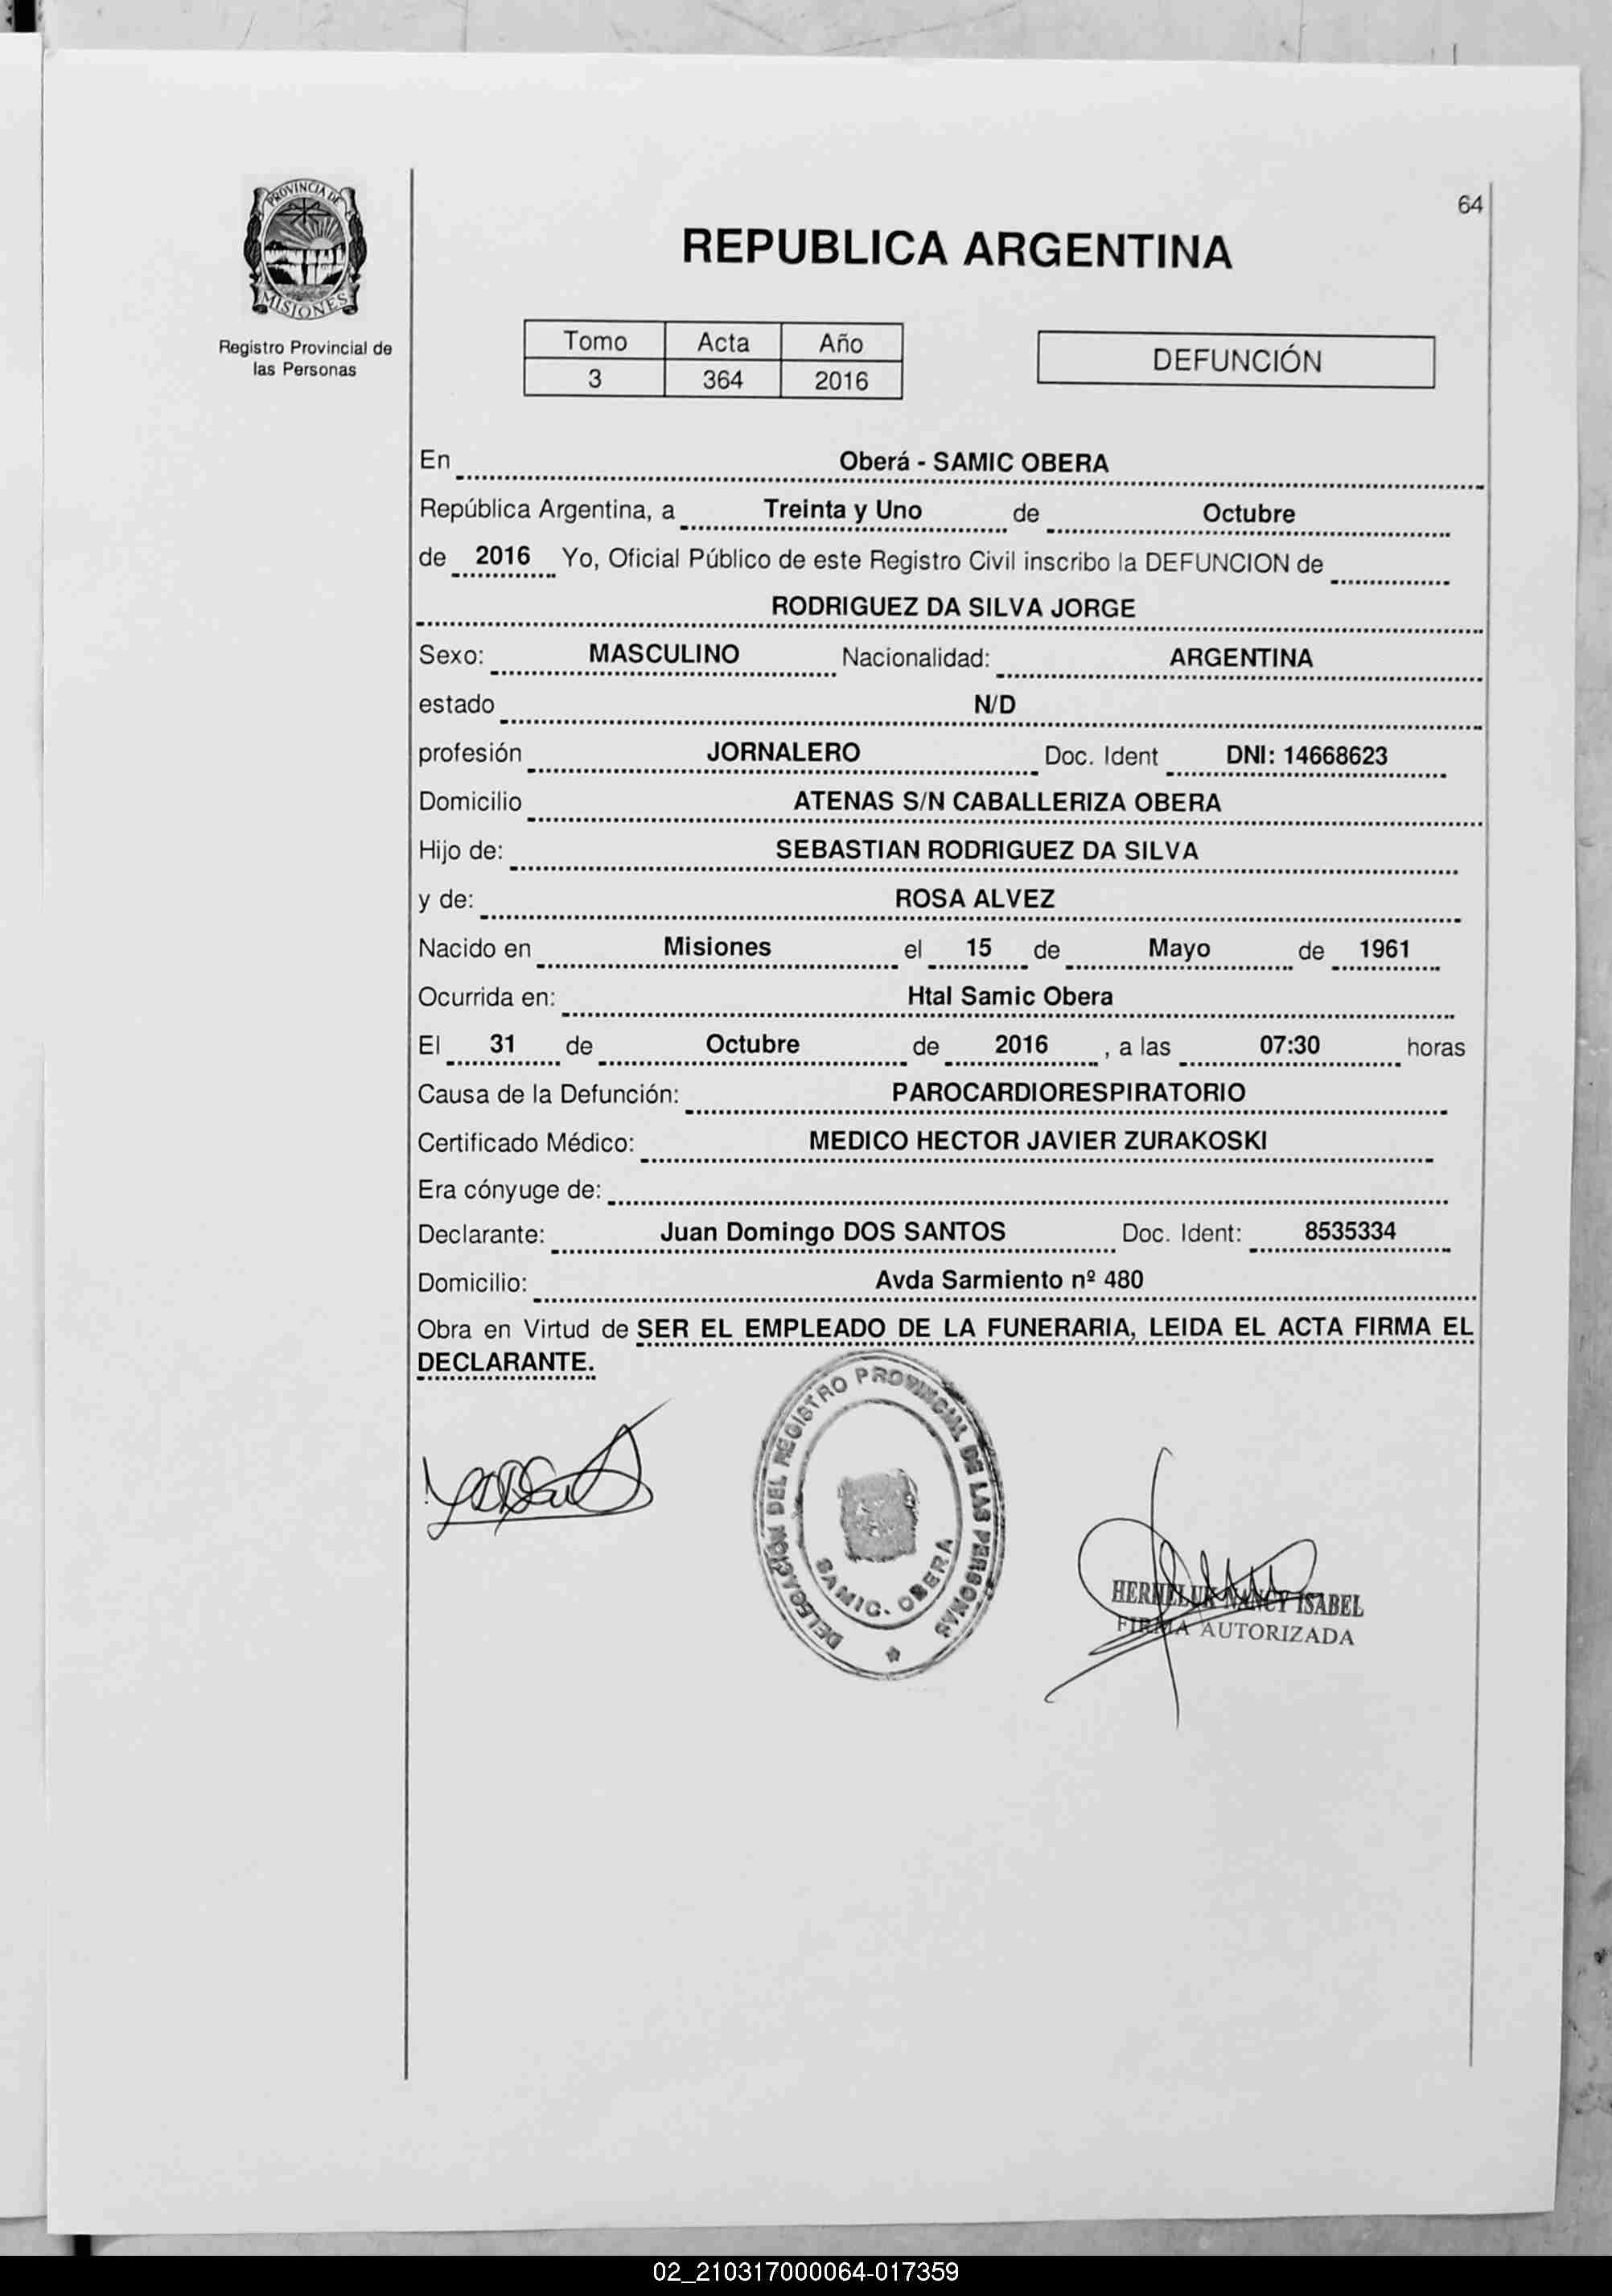 64
PROVINCIA DE
MISIONES
Registro Provincial de
las Personas
REPUBLICA ARGENTINA
Tomo Acta Año
3 364 2016
DEFUNCIÓN
En Oberá - SAMIC OBERA
República Argentina, a Treinta y Uno de Octubre
de 2016 Yo, Oficial Público de este Registro Civil inscribo la DEFUNCION de
RODRIGUEZ DA SILVA JORGE
Sexo: MASCULINO Nacionalidad: ARGENTINA
estado N/D
profesión JORNALERO Doc. Ident DNI: 14668623
Domicilio ATENAS S/N CABALLERIZA OBERA
Hijo de: SEBASTIAN RODRIGUEZ DA SILVA
y de: ROSA ALVEZ
Nacido en Misiones el 15 de Mayo de 1961
Ocurrida en: Htal Samic Obera
El 31 de Octubre de 2016 , a las 07:30 horas
Causa de la Defunción: PAROCARDIORESPIRATORIO
Certificado Médico: MEDICO HECTOR JAVIER ZURAKOSKI
Era cónyuge de:
Declarante: Juan Domingo DOS SANTOS Doc. Ident: 8535334
Domicilio: Avda Sarmiento nº 480
Obra en Virtud de SER EL EMPLEADO DE LA FUNERARIA, LEIDA EL ACTA FIRMA EL
DECLARANTE.
DELEGACIÓN DEL REGISTRO PROVINCIAL DE LAS PERSONAS
SAMIC. OBERA
NANCY ISABEL
FIRMA AUTORIZADA
02_210317000064-017359